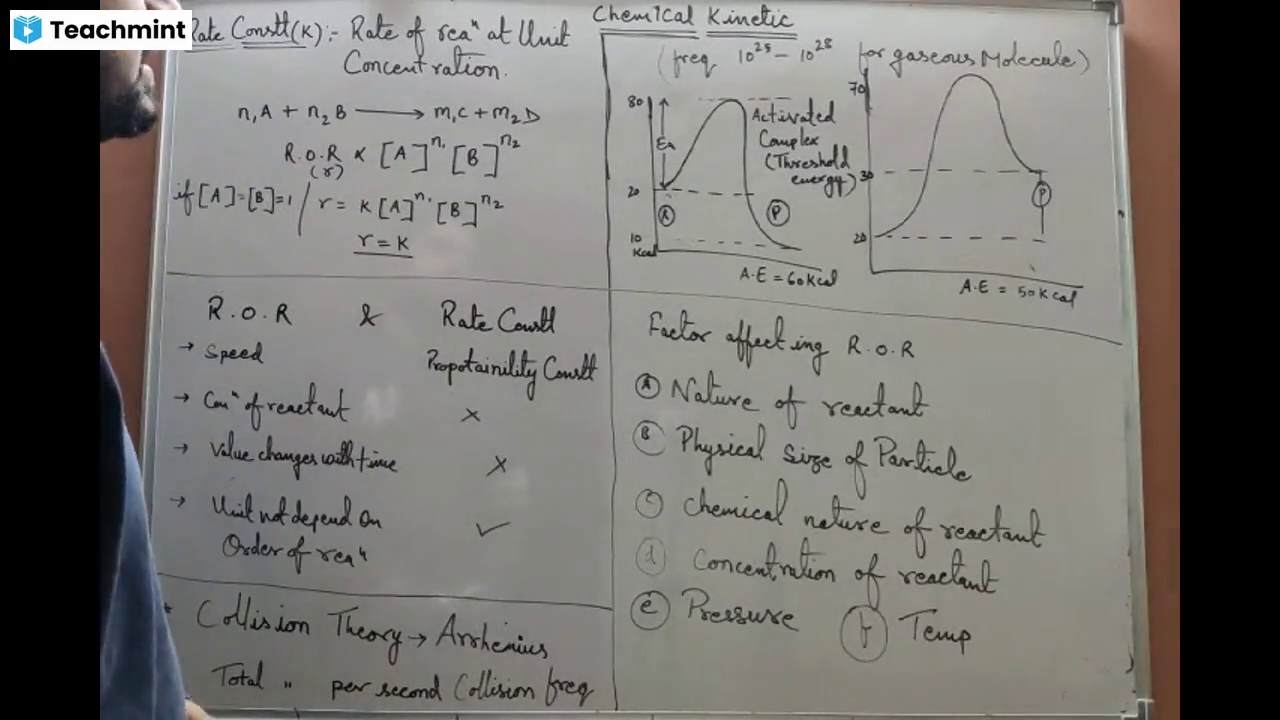 Teachmint
Chemical Kinetic
Rate Constt(K):- Rate of rea^n at Unit
Concentration.
n₁A + n₂B ⟶ m₁C + m₂D
R.O.R ∝ [A]^n₁ [B]^n₂
(r)
if [A]=[B]=1 / r = K[A]^n₁ [B]^n₂
r = K
R.O.R & Rate Constt
→ Speed Propotainility Constt
→ Con^n of reactant ×
→ Value changes with time ×
→ Unit not depend on ✓
Order of rea^n
* Collision Theory → Arrhenius
Total " per second Collision freq
(freq 10^25 – 10^28 for gaseous Molecule)
80
Ea
20
10
Kcal
R
P
Activated
Complex
(Threshold
energy)
A.E = 60Kcal
70
30
20
P
A.E = 50Kcal
Factor affecting R.O.R
(A) Nature of reactant
(B) Physical size of Particle
(C) Chemical nature of reactant
(d) Concentration of reactant
(e) Pressure (f) Temp